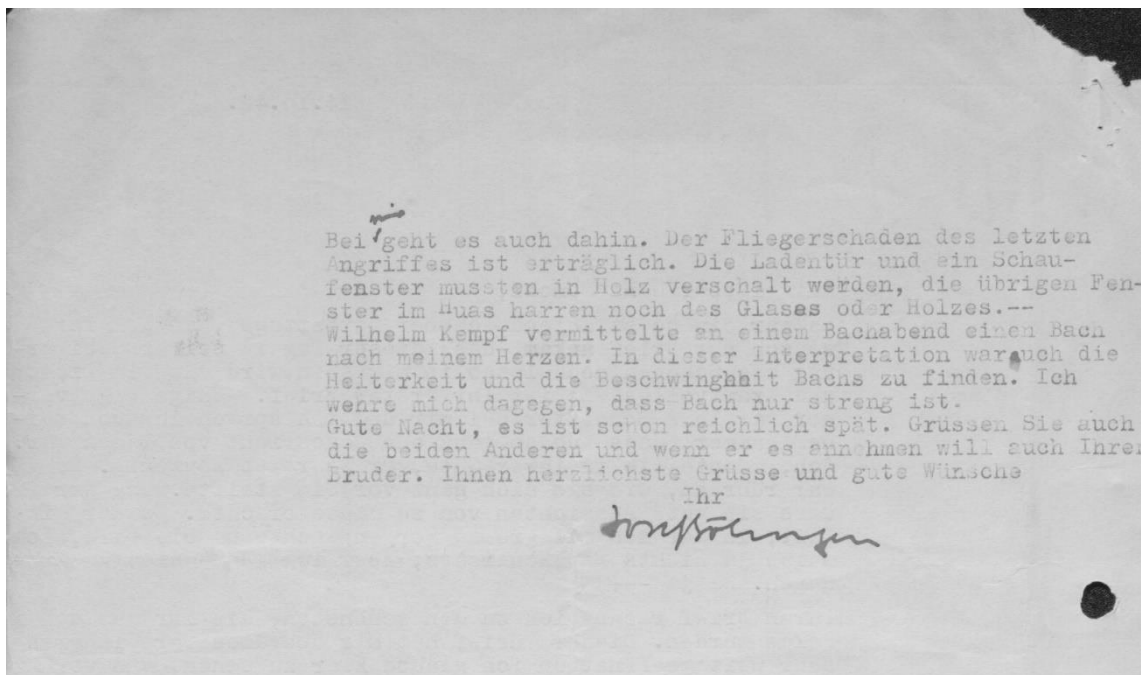 mir
Bei geht es auch dahin. Der Fliegerschaden des letzten
Angriffes ist erträglich. Die Ladentür und ein Schau-
fenster mussten in Holz verschalt werden, die übrigen Fen-
ster im Huas harren noch des Glases oder Holzes.--
Wilhelm Kempf vermittelte an einem Bachabend einen Bach
nach meinem Herzen. In dieser Interpretation war auch die
Heiterkeit und die Beschwinghhit Bachs zu finden. Ich
wehre mich dagegen, dass Bach nur streng ist.
Gute Nacht, es ist schon reichlich spät. Grüssen Sie auch
die beiden Anderen und wenn er es annehmen will auch Ihren
Bruder. Ihnen herzlichste Grüsse und gute Wünsche
Ihr